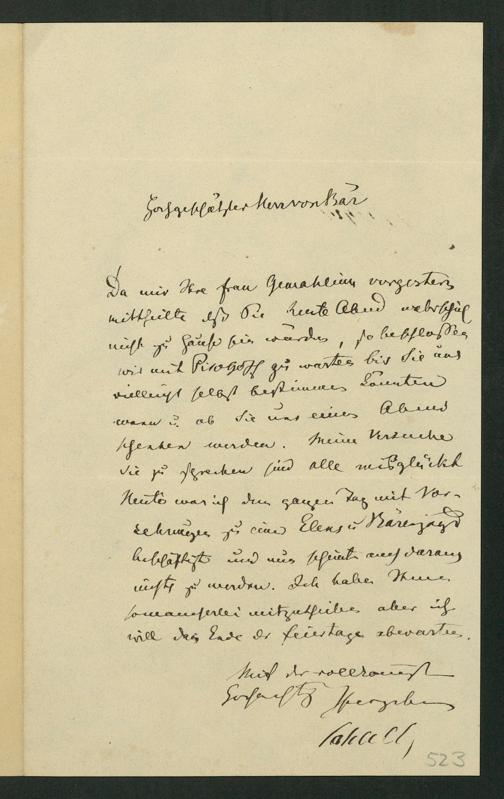 Hochgeschätzter Herr von Bär
Da mir Ihre Frau Gemahlinn vorgestern
mittheilte daß Sie heute Abend wahrscheinl
nicht zu Hause sein würden, so beschlossen
wir mit Pirogoff zu warten bis Sie uns
vielleicht selbst bestimmen könnten
wann u. ob Sie uns einen Abend
schenken werden. Meine Versuche
Sie zu sprechen sind alle misglückt
Heute war ich den ganzen Tag mit Vor-
kehrungen zu einer Elens u Bärenjagd
beschäftigt und nun scheint auch daraus
nichts zu werden. Ich habe Ihnen
so mancherlei mitzutheilen aber ich
will das Ende der Feiertage abwarten.
Mit der vollkommenst
Hochacht
523